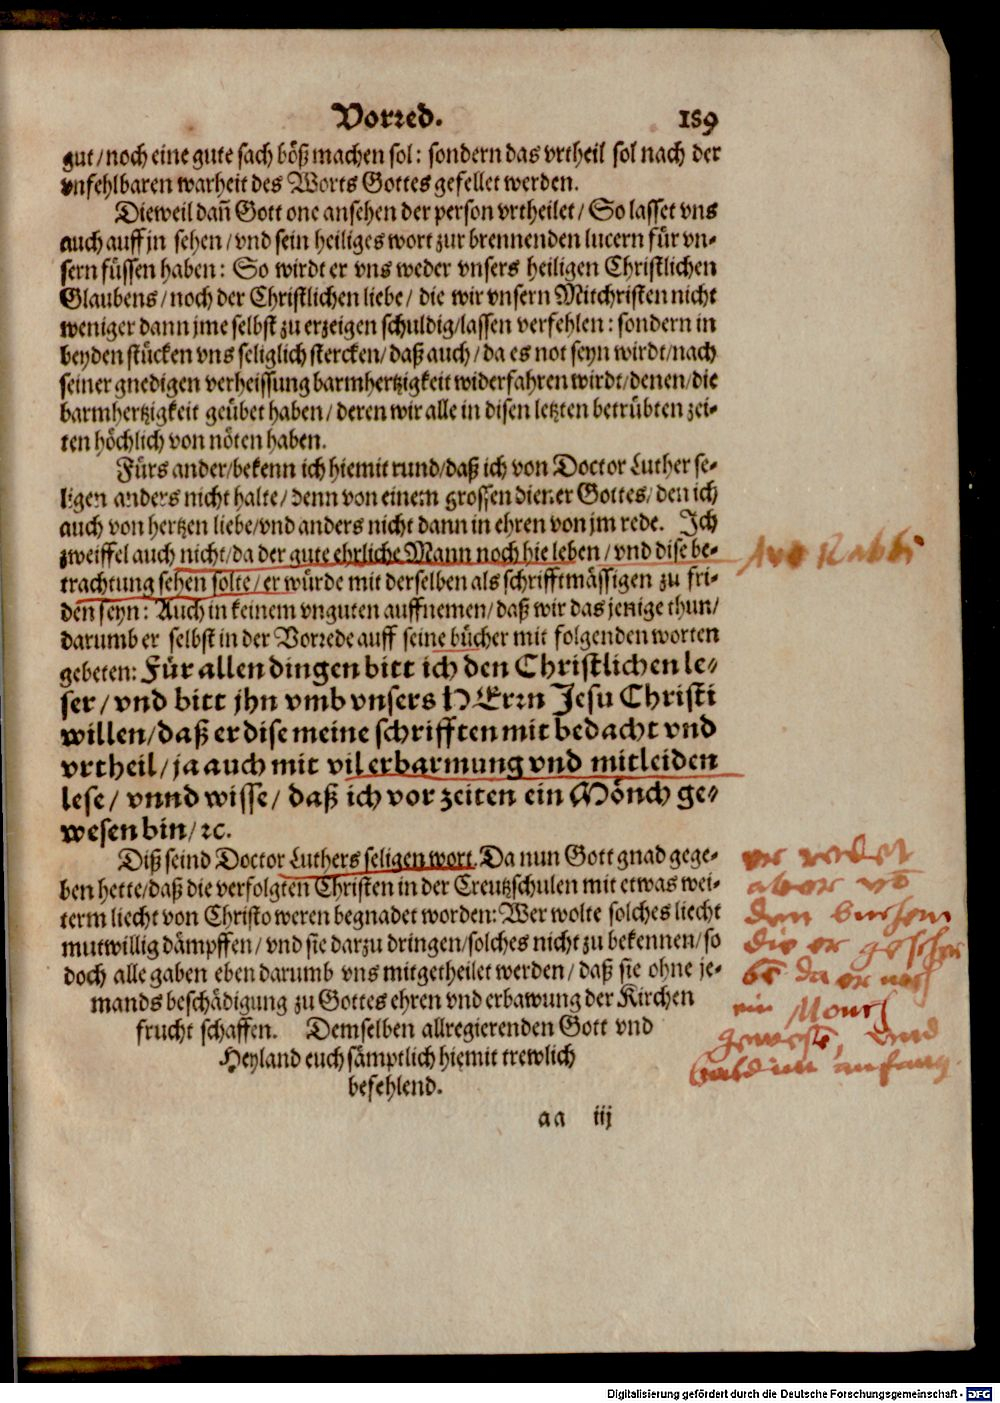 Vorred. 189
gut/noch eine gute sach böß machen sol: sondern das vrtheil sol nach der
vnfehlbaren warheit des Worts Gottes gefellet werden.
Dieweil dañ Gott one ansehen der person vrtheilet/ So lasset vns
auch auff jn sehen/vnd sein heiliges wort zur brennenden lucern für vn-
sern füssen haben: So wirdt er vns weder vnsers heiligen Christlichen
Glaubens/noch der Christlichen liebe/ die wir vnsern Mitchristen nicht
weniger dann jme selbst zu erzeigen schuldig/lassen verfehlen: sondern in
beyden stücken vns seliglich stercken/daß auch/da es not seyn wirdt/nach
seiner gnedigen verheissung barmhertzigkeit widerfahren wirdt/denen/die
barmhertzigkeit geübet haben/deren wir alle in disen letzten betrübten zei-
ten höchlich von nöten haben.
Fürs ander/bekenn ich hiemit rund/daß ich von Doctor Luther se-
ligen anders nicht halte/denn von einem grossen diener Gottes/den ich
auch von hertzen liebe/vnd anders nicht dann in ehren von jm rede. Ich
zweiffel auch nicht/da der gute ehrliche Mann noch hie leben/vnd dise be-
trachtung sehen solte/er würde mit derselben als schrifftmässigen zu fri-
den seyn: Auch in keinem vnguten auffnemen/daß wir das jenige thun/
darumb er selbst in der Vorrede auff seine bücher mit folgenden worten
gebeten: Für allen dingen bitt ich den Christlichen le-
ser/vnd bitt jhn vmb vnsers HErrn Jesu Christi
willen/daß er dise meine schrifften mit bedacht vnd
vrtheil/ja auch mit vil erbarmung vnd mitleiden
lese/ vnnd wisse/ daß ich vor zeiten ein Mönch ge-
wesen bin/ꝛc.
Diß seind Doctor Luthers seligen wort. Da nun Gott gnad gege-
ben hette/daß die verfolgten Christen in der Creutzschulen mit etwas wei-
term liecht von Christo weren begnadet worden: Wer wolte solches liecht
mutwillig dämpffen/vnd sie darzu dringen/solches nicht zu bekennen/so
doch alle gaben eben darumb vns mitgetheilet werden/daß sie ohne je-
mands beschädigung zu Gottes ehren vnd erbawung der Kirchen
frucht schaffen. Demselben allregierenden Gott vnd
Heyland euch sämptlich hiemit trewlich
befehlend.
aa iij
Rabbi
er redet
aber võ
den
die er
da er noch
ein Monch
vnd
anfang.
Digitalisierung gefördert durch die Deutsche Forschungsgemeinschaft - DFG